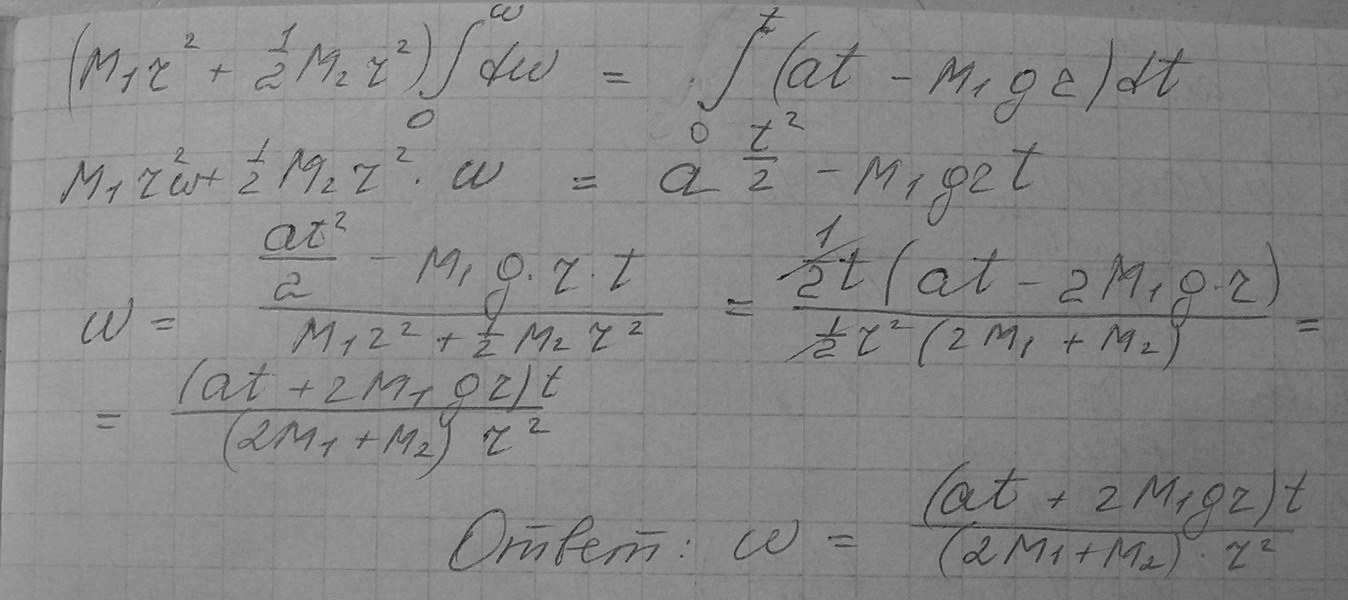 (M₁r² + ½M₂r²) ∫₀^ω dω = ∫₀^t (at − M₁gr)dt
M₁r²ω + ½M₂r² · ω = a t²/2 − M₁grt
ω = (at²/2 − M₁g·r·t)/(M₁r² + ½M₂r²) = (½t(at − 2M₁g·r))/(½r²(2M₁ + M₂)) =
= ((at + 2M₁gr)t)/((2M₁ + M₂) r²)
Ответ: ω = ((at + 2M₁gr)t)/((2M₁ + M₂) · r²)